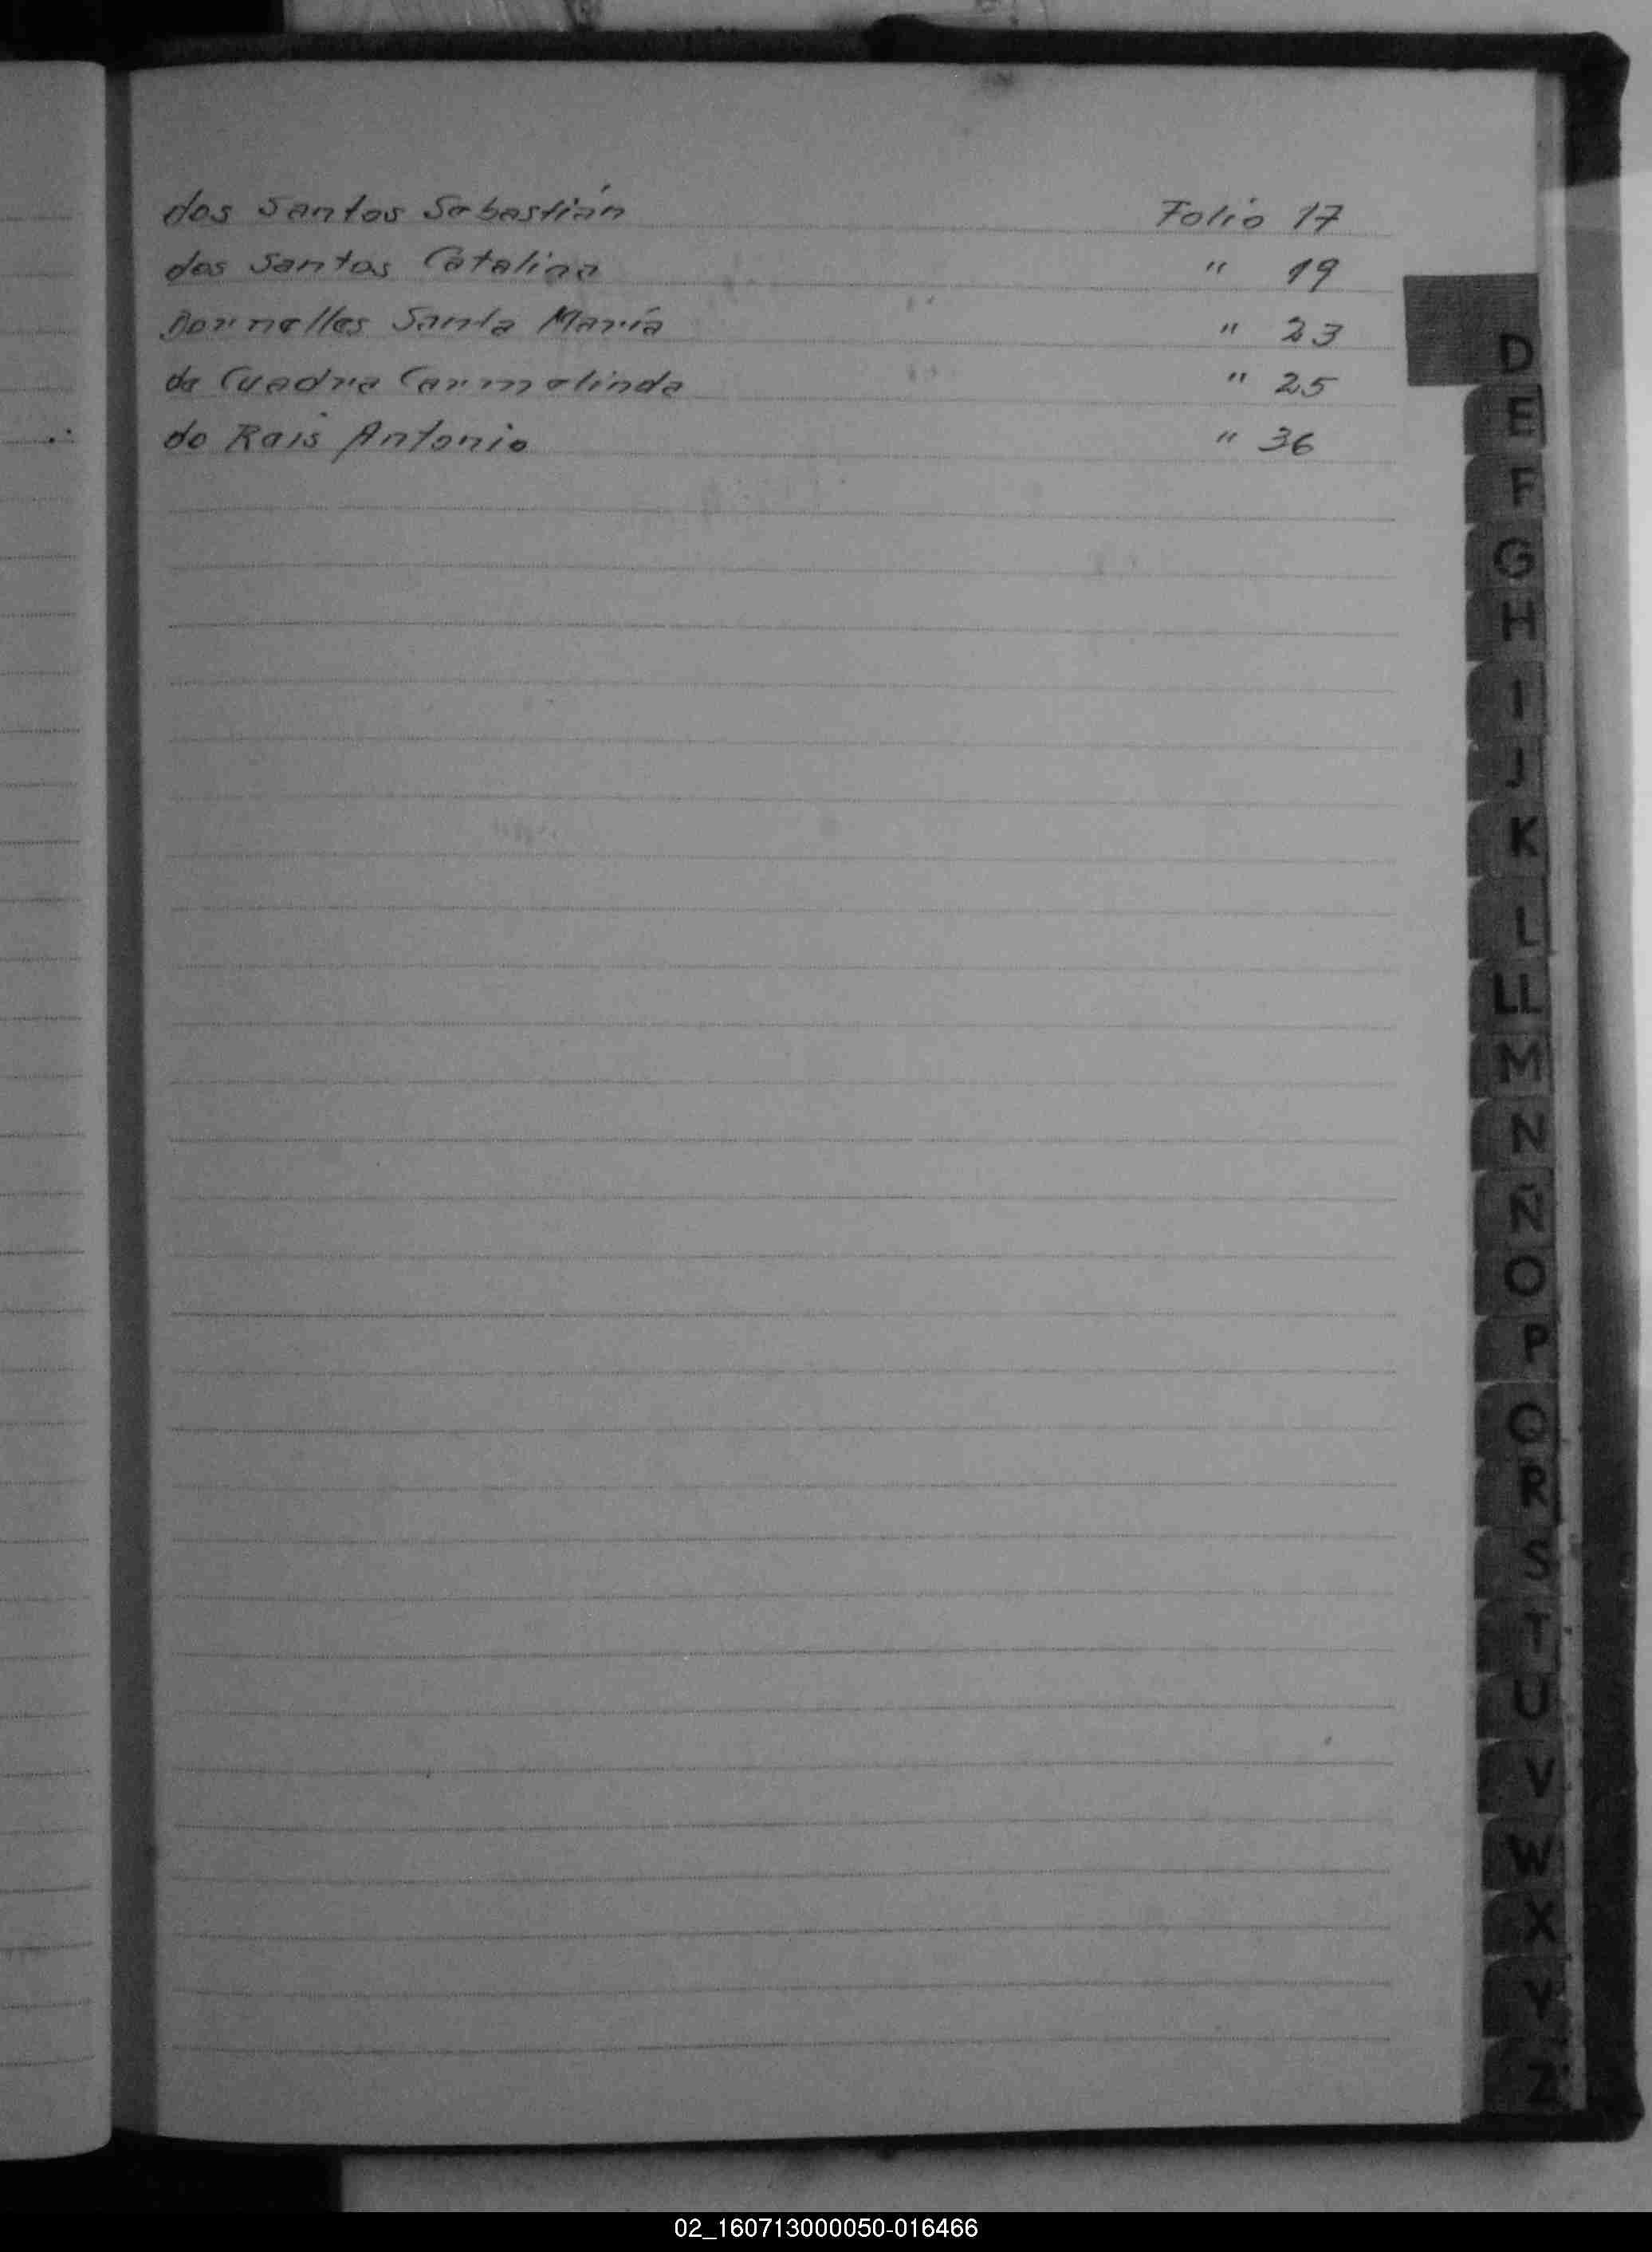 dos Santos Sebastián Folio 17
dos Santos Catalina " 19
Dornelles Santa María " 23
da Cuadra Carmelinda " 25
do Rais Antonio " 36
D
E
F
G
H
I
J
K
L
LL
M
N
Ñ
O
P
Q
R
S
T
U
V
W
X
Y
Z
02_160713000050-016466